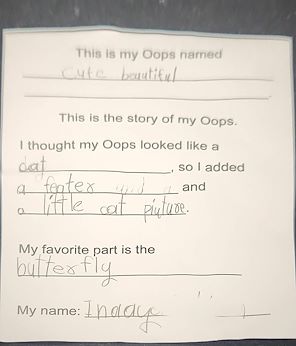 This is my Oops named
cute beautiful
This is the story of my Oops.
I thought my Oops looked like a
cat, so I added
a and
a little cat picture.
My favorite part is the
butterfly
My name: